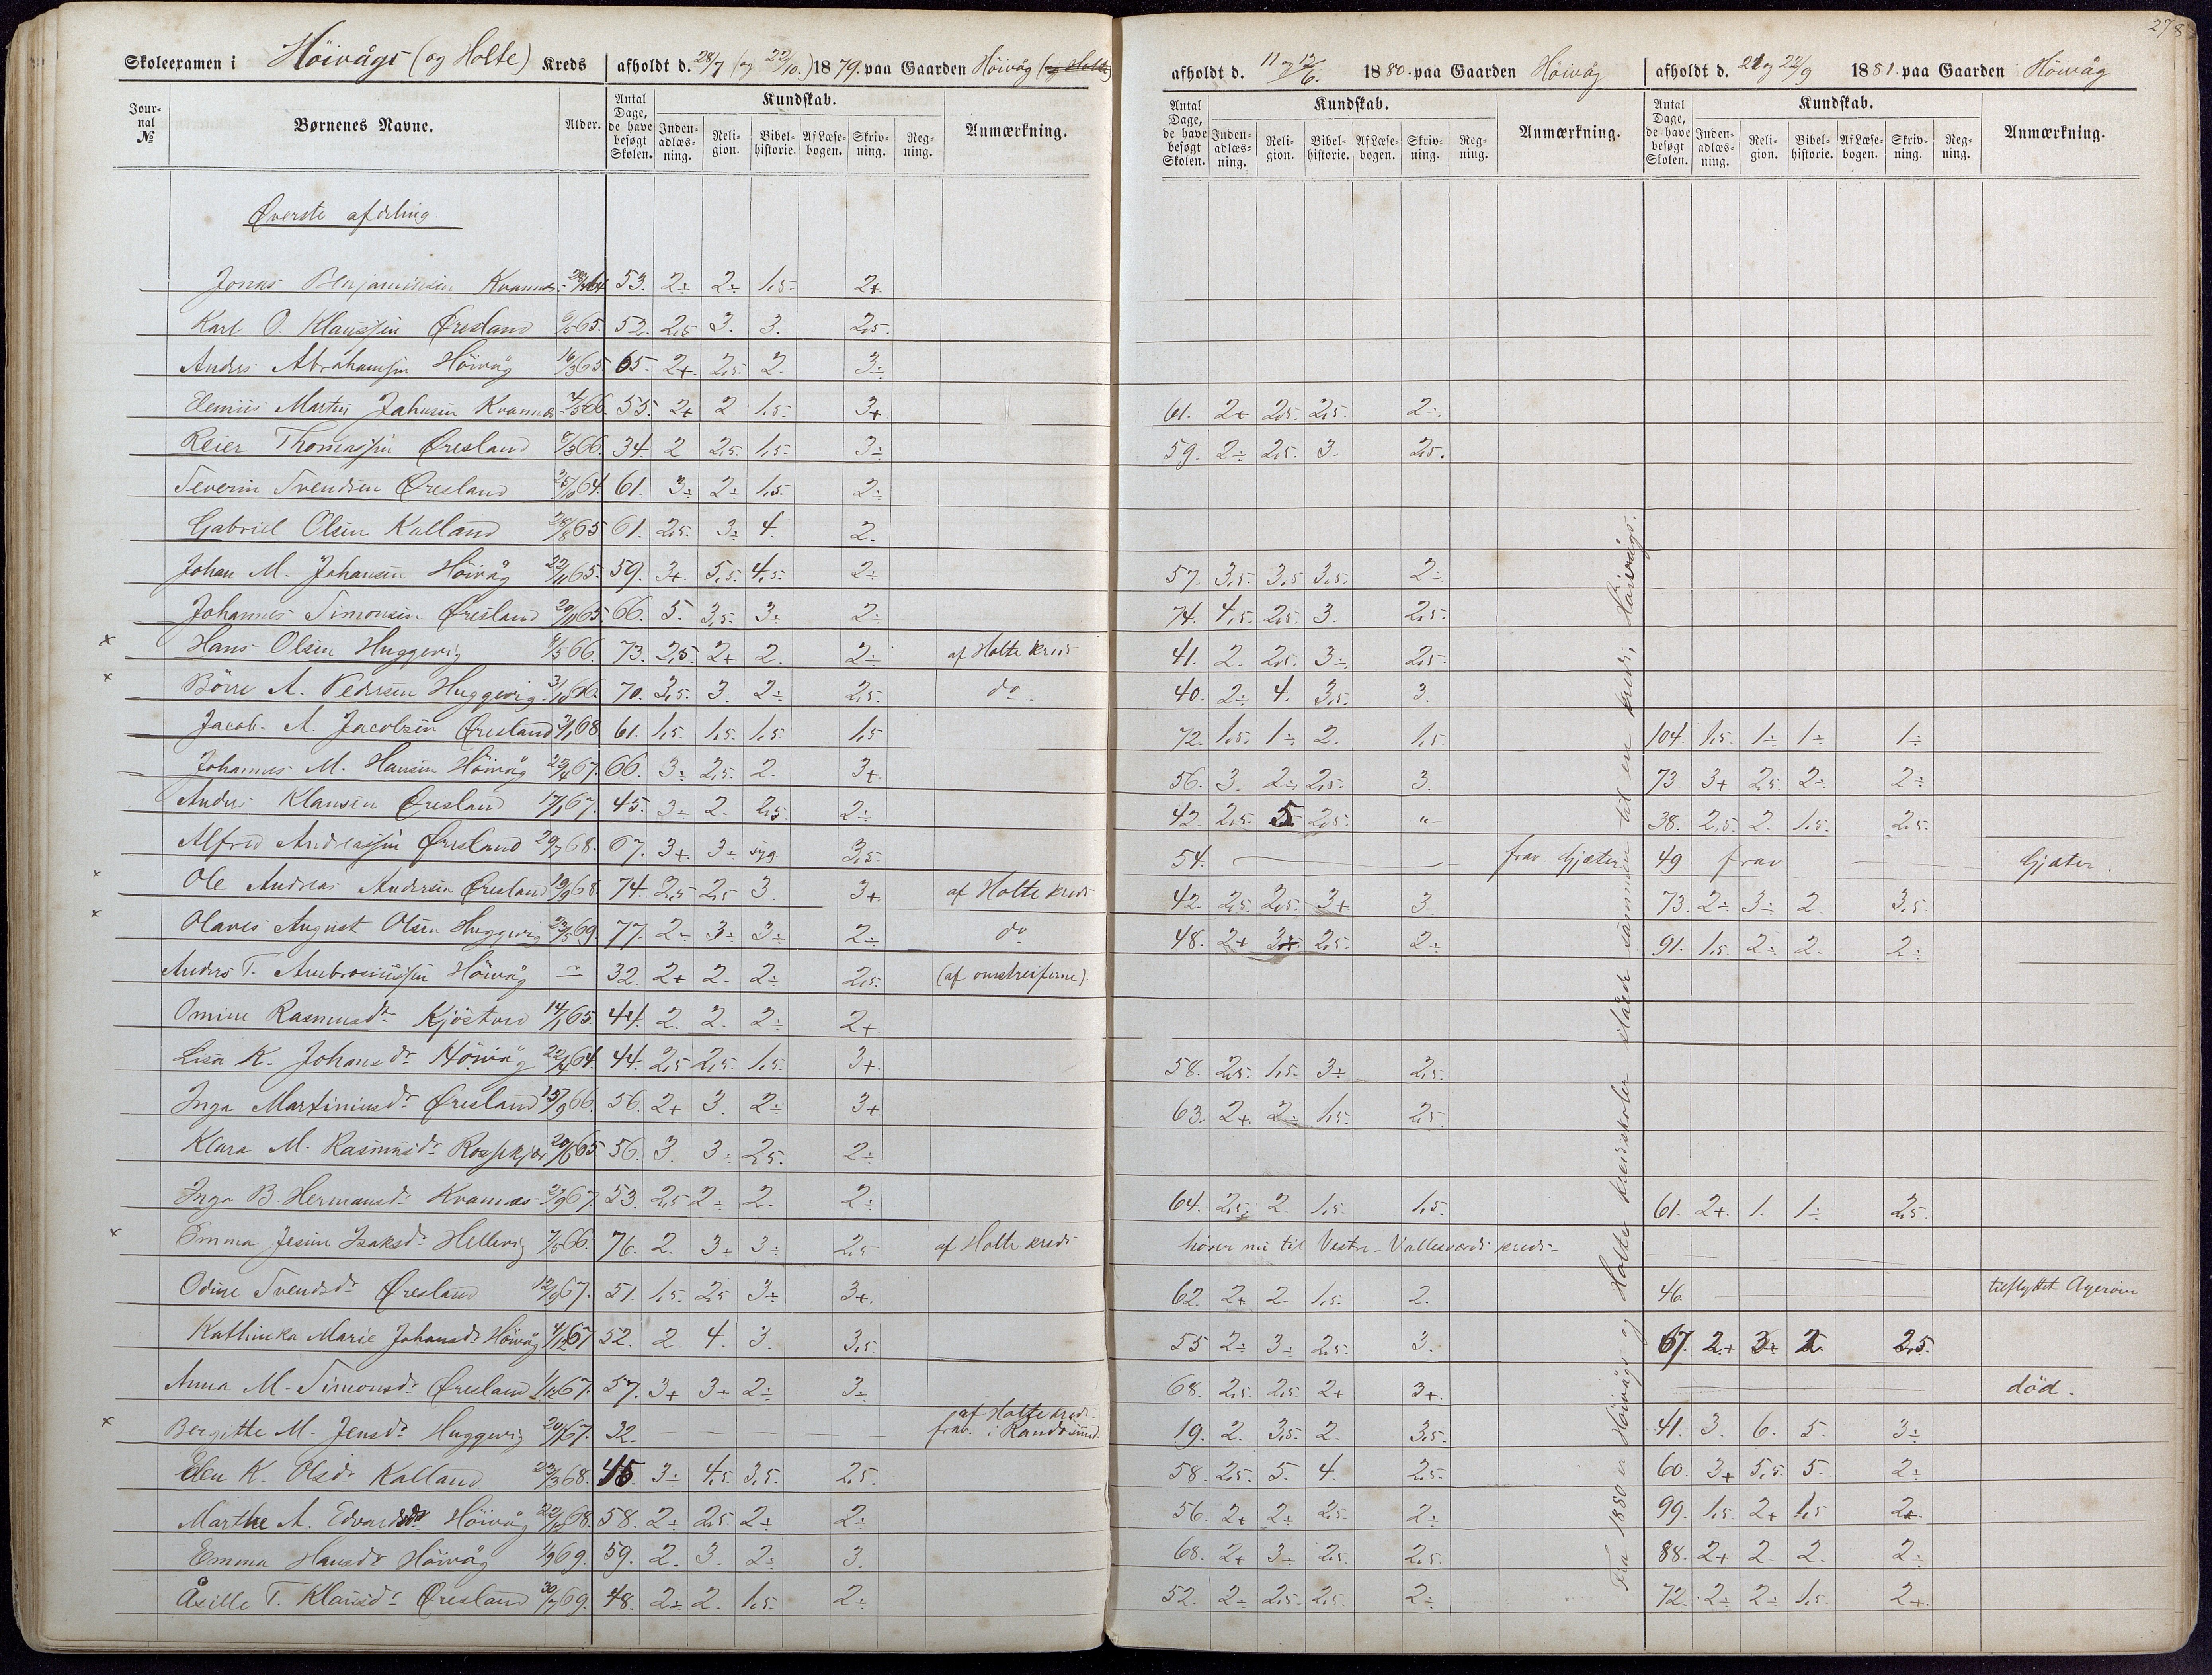 278
Skoleexamen i Höivågs (og Holte) Kreds
afholdt d. 28/7 (og 22/10.) 1879. paa Gaarden Höivåg (og Holte)
afholdt d. 11 og 12/6. 1880. paa Gaarden Höivåg
afholdt d. 21 og 22/9 1881. paa Gaarden Höivåg
Journal № Børnenes Navne. Alder. Antal Dage, de have besøgt Skolen. Kundskab. Indenadlæsning. Religion. Bibelhistorie. Af Læsebogen. Skrivning. Regning. Anmærkning.
Antal Dage, de have besøgt Skolen. Kundskab. Indenadlæsning. Religion. Bibelhistorie. Af Læsebogen. Skrivning. Regning. Anmærkning.
Antal Dage, de have besøgt Skolen. Kundskab. Indenadlæsning. Religion. Bibelhistorie. Af Læsebogen. Skrivning. Regning. Anmærkning.
Øverste afdeling.
Jonas 53. 2÷ 2÷ 1,5 2+
Karl O. Klaussen Øresland 9/5 65. 52. 2,5 3. 3. 2,5.
Anders Abrahamsen Höivåg 16/3 65 65. 2+ 2,5. 2. 3÷
Martin Kvannes 66. 55. 2+ 2. 1,5. 3+ 61. 2+ 2,5. 2,5. 2÷
Reier Thomassen Øresland 8/3 66. 34. 2 2,5. 1,5. 3÷ 59. 2÷ 2,5. 3. 2,5.
Severin Svendsen Øresland 64. 61. 3÷ 2÷ 1,5. 2÷
Gabriel Olsen Kalland 65 61. 2,5. 3÷ 4. 2.
Johan M. Johansen Höivåg 22/11 65. 59. 3+ 5,5. 4,5. 2÷ 57. 3,5. 3,5 3,5. 2÷
Johannes Simonsen Øresland 20/11 65 66. 5. 3,5. 3÷ 2÷ 74. 4,5. 2,5. 3. 2,5.
x Hans Olsen Huggevig 66. 73. 2,5. 2+ 2. 2÷ af Holte kreds 41. 2. 2,5. 3÷ 2,5.
x Börre A. Pedersen Huggevig 31/10 66. 70. 3,5. 3. 2÷ 2,5. do 40. 2÷ 4. 3,5. 3.
Jacob A. Jacobsen Øresland 68 61. 1,5. 1,5. 1,5. 1,5 72. 1,5. 1÷ 2. 1,5. 104. 1,5. 1÷ 1÷ 1÷
Johannes M. Hansen Höivåg 67. 66. 3÷ 2,5. 2. 3+ 56. 3. 2÷ 2,5. 3. 73. 3+ 2,5. 2÷ 2÷
Anders Klausen Øresland 17/1 67. 45. 3÷ 2. 2,5 2÷ 42. 2,5. 2,5. "- 38. 2,5. 2. 1,5. 2,5.
Alfred Andreassen Øresland 29/7 68. 67. 3+ 3÷ syg. 3,5. 54. frav. Gjæter 49 frav Gjæter.
x Ole Andreas Andersen Øresland 19/9 68. 74. 2,5 2,5 3. 3+ af Holte kreds 42. 2,5. 2,5. 3+ 3. 73. 2÷ 3÷ 2. 3,5.
x Olaves August Olsen Huggevig 23/5 69. 77. 2÷ 3÷ 3÷ 2÷ do 48. 2+ 3+ 2,5. 2÷ 91. 1,5. 2÷ 2. 2÷
Anders T. Ambrosiussen Höivåg — 32. 2+ 2. 2÷ 2,5. (af omstreiferne).
Omine Rasmusdr Kjöstved 14/1 65. 44. 2. 2. 2÷ 2+
Lisa K. Johansdr Höivåg 22/4 64. 44. 2,5 2,5. 1,5. 3+ 58. 2,5. 1,5. 3÷ 2,5.
Inga Martiniusdr Øresland 15/9 66. 56. 2+ 3. 2÷ 3+ 63. 2+ 2÷ 1,5. 2,5
Klara M. Rasmusdr 20/6 65. 56. 3. 3÷ 2,5. 2÷
Inga B. Hermansdr Kvannes 67. 53. 2,5 2÷ 2. 2÷ 64. 2,5. 2. 1,5. 1,5. 61. 2+. 1. 1÷ 2,5.
x Emma Jesine Isaksdr Hellevig 7/5 66. 76. 2. 3÷ 3÷ 2,5 af Holte kreds hörer nu til Vestre-Vallesværds kreds
Odine Svendsdr Øresland 12/9 67. 51. 1,5. 2,5 3÷ 3+. 62. 2+ 2. 1,5. 2. 46. tilflyttet Ageröen
Kathinka Marie Johansdr Höivåg 4/12 67 52. 2. 4. 3. 3,5. 55 2÷ 3÷ 2,5. 3. 67. 2.+ 3+ 2. 2,5.
Anna M. Simonsdr Øresland 67. 57. 3+ 3÷ 2÷ 3÷ 68. 2,5. 2,5. 2+ 3+. död.
x Bergitte M. Jensdr Huggevig 67. 32. af Holte kreds. frav. i Randösund. 19. 2. 3,5. 2. 3,5. 41. 3. 6. 5. 3÷
Elen K. Olsdr Kalland 23/3 68. 45. 3÷ 4,5. 3,5. 2,5. 58. 2,5. 5. 4. 2,5. 60. 3+ 5,5. 5. 2÷
Marthe A. Edvardsdr Höivåg 22/12 68. 58. 2÷ 2,5. 2÷ 2÷ 56. 2+ 2÷ 2,5. 2÷ 99. 1,5. 2+ 1,5 2+.
Emma Hansdr Höivåg 69. 59. 2. 3. 2÷ 3. 68. 2+ 3÷ 2,5. 2,5. 88. 2+ 2. 2. 2÷
Åsille T. Klausdr Øresland 30/7 69. 48. 2÷ 2. 1,5. 2÷ 52. 2÷ 2,5. 2,5. 2÷ 72. 2÷ 2÷ 1,5. 2+.
Fra 1880 er Höivågs og Holte kredsskoler slåede sammen til en kreds, Höivågs.